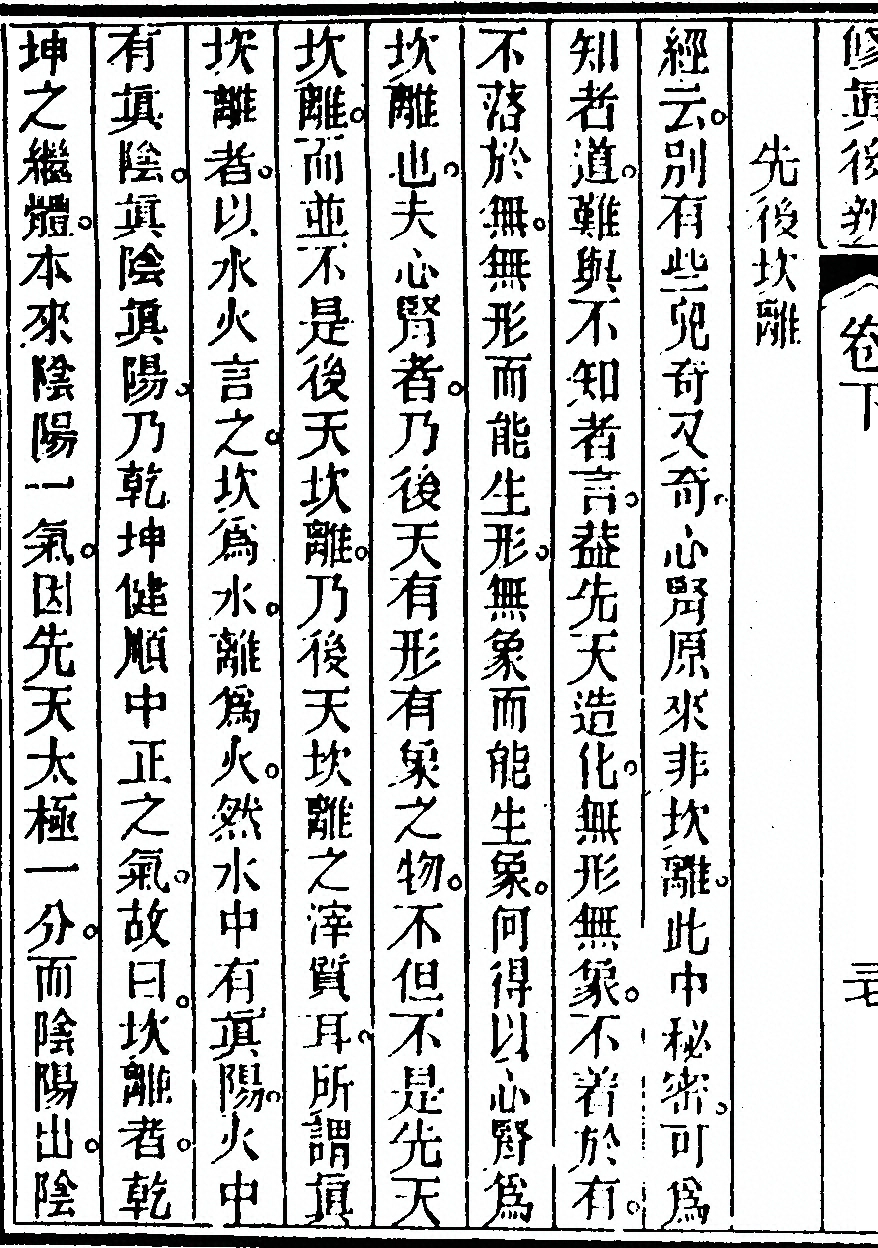 修真後辨
卷下
先後坎離
經云。別有些兒奇又奇。心腎原來非坎離。此中秘密。可為
知者道。難與不知者言。葢先天造化。無形無象。不着於有。
不落於無。無形而能生形。無象而能生象。何得以心腎為
坎離也。夫心腎者。乃後天有形有象之物。不但不是先天
坎離。而並不是後天坎離。乃後天坎離之滓質耳。所謂眞
坎離者。以水火言之。坎為水。離為火。然水中有眞陽。火中
有眞陰。眞陰眞陽。乃乾坤健順中正之氣。故曰。坎離者。乾
坤之繼體。本來陰陽一氣。因先天太極一分。而陰陽出。陰